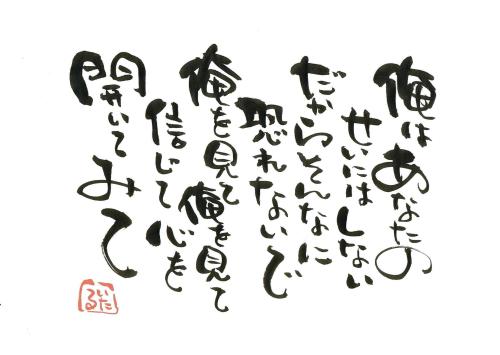 俺はあなたの
せいにはしない
だからそんなに
恐れないで
俺を見て俺を見て
信じて心を
開いてみて